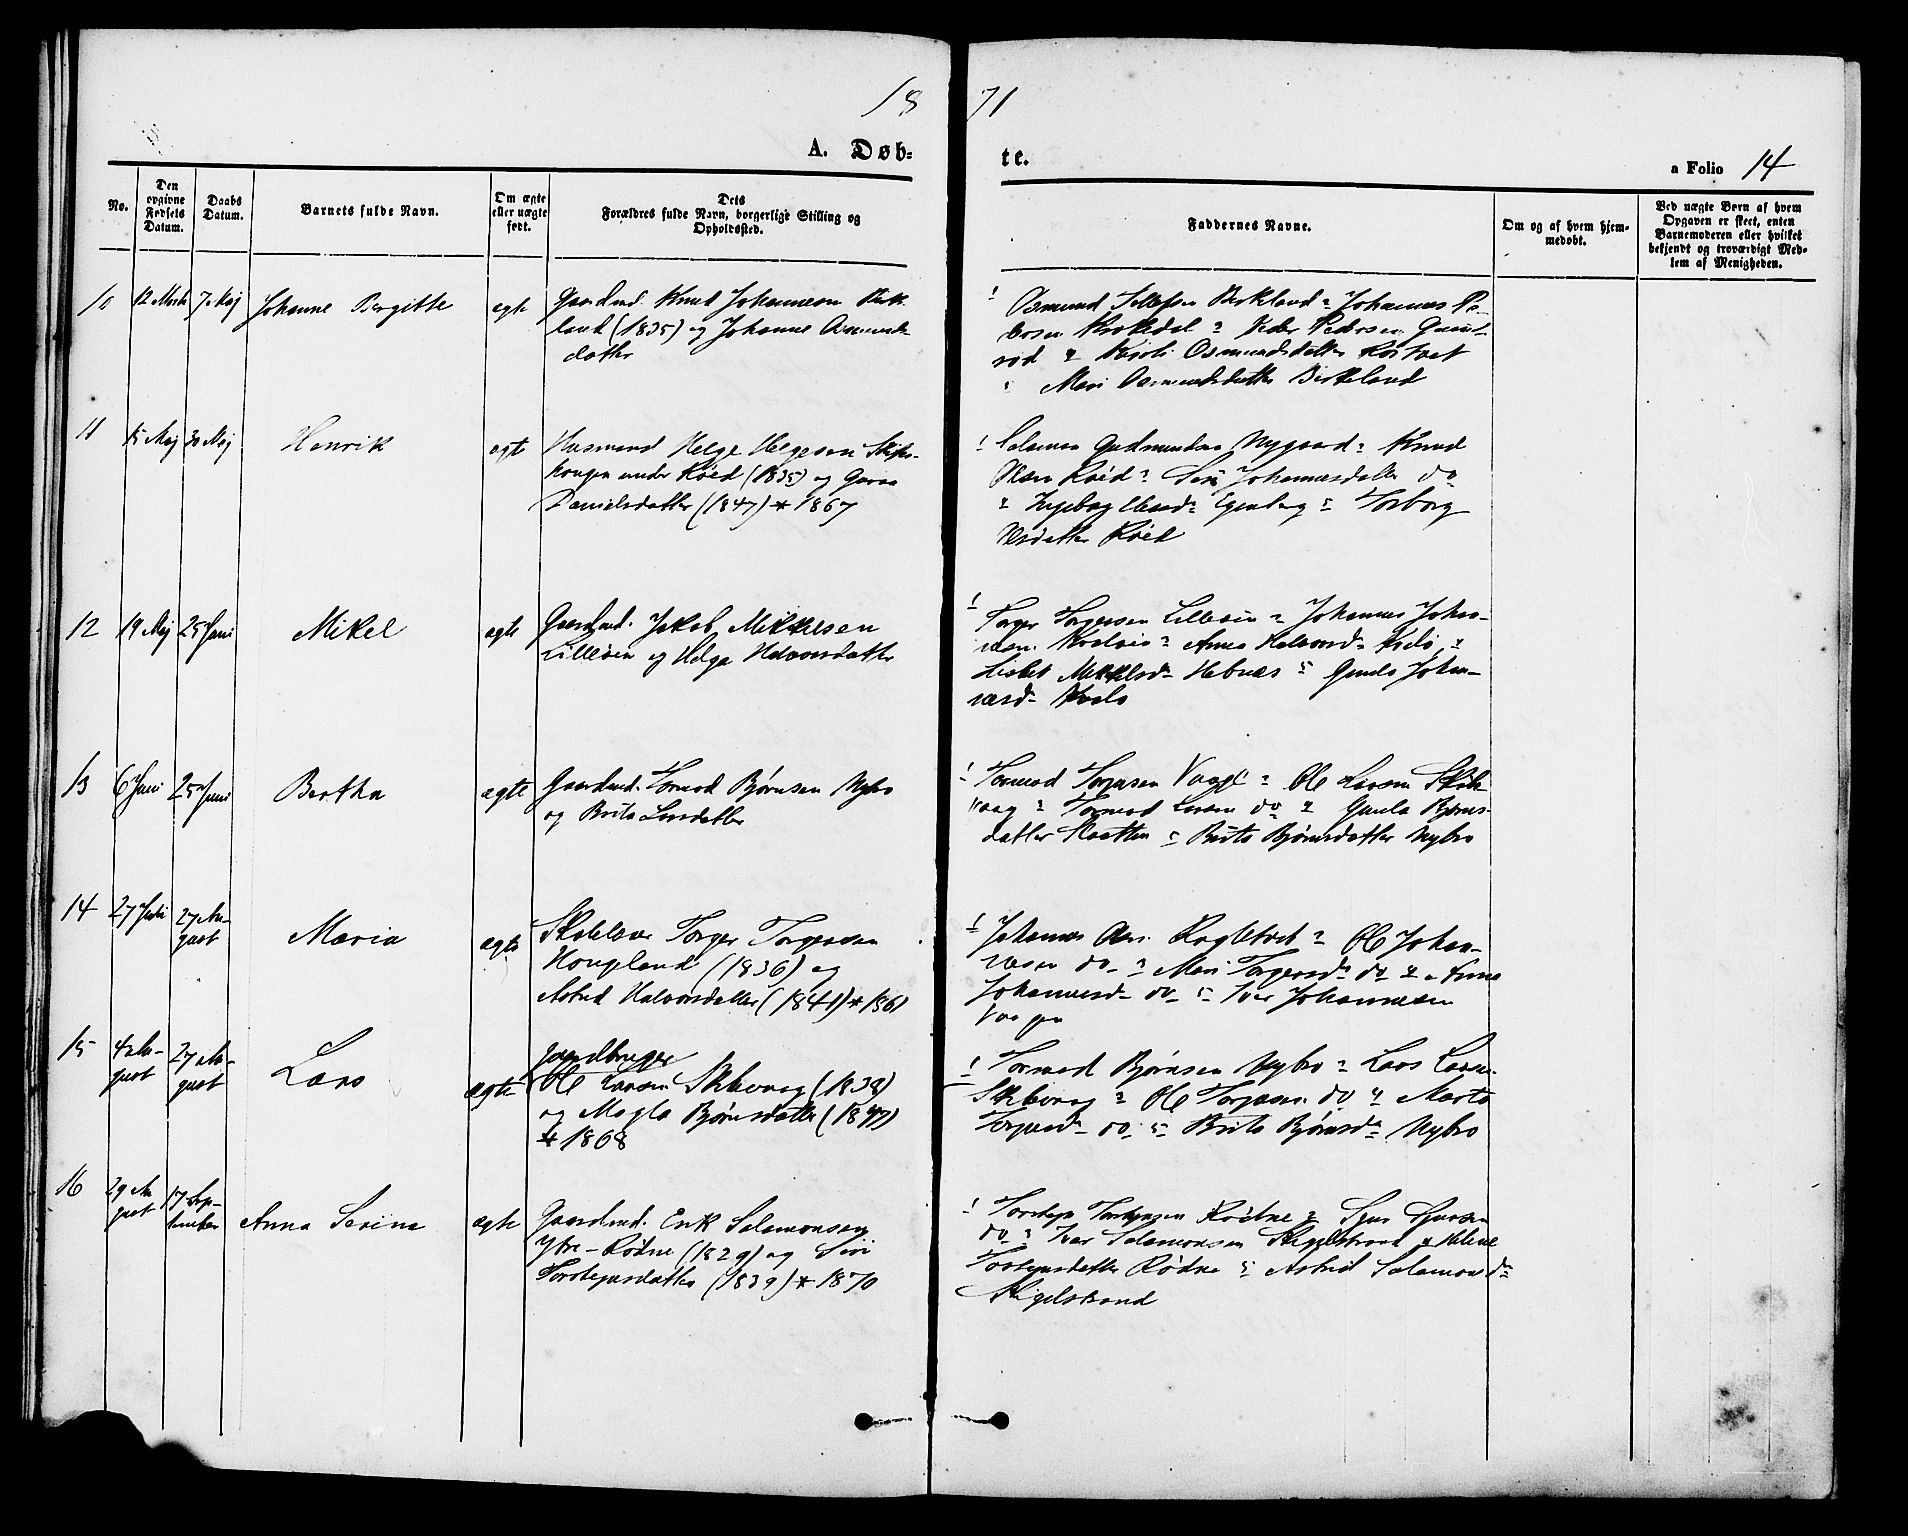 18 71
A. Døb= te.
a Folio 14
No.
Den opgivne Fødsels Datum.
Daabs Datum.
Barnets fulde Navn.
Om ægte eller uægte født.
Dets Forældres fulde Navn, borgerlige Stilling og Opholdssted.
Faddernes Navne.
Om og af hvem hjem-medøbt.
Ved uægte Børn af hvem Opgaven er skeet, enten Barnemoderen eller hvilket bekjendt og troværdigt Med-lem af Menigheden.
10 12 Marts 7 Maj Johanne Bergitte ægte
Gaardmd. Knud Johannesen Birk-
land (1835) og Johanne Osmunds-
datter
Osmund Birkland Johannes Pe-
dersen Peder Pedersen
rød Osmundsdatter
Mari Osmundsdatter Birkeland
11 15 Maj 30 Maj Henrik ægte
Husmand Helge Helgesen
under Røed (1835) og
Danielsdatter (1847) * 1867
Salamon Gudmundsen Nygaard Knud
Olsen Røed Siri Johannesdatter do
Ingeborg Torborg
Olsdatter Røed
12 19 Maj 25 Juni Mikel ægte
Gaardmd. Jakob Mikkelsen
Lilleøen og Helga Halvorsdatter
Torger Torgersen Lilleøen Johannes Johan-
nesen Anna Halvorsd.
Lisbet Mikkelsd. Hebnæs Johan-
nesd.
13 6 Juni 25 Juni Bertha ægte
Gaardmd. Tormod Bjørnsen Nybro
og Brita Larsdatter
Tormod Torjusen Vaage Ole Larsen
vaag Tormod Larsen do Bjørns-
datter Brita Bjørnsdatter Nybro
14 27 Juli 27 Au-
gust Maria ægte
Skolelærer Torger Torgersen
Hougland (1836) og
Astrid Halvorsdatter (1841) * 1861
Johannes Ole Johan-
nesen do Mari Torgersd. do Anna
Johannesd. do Iver Johannesen
Vaagen
15 4 Au-
gust 27 Au-
gust Lars ægte
Jordbruger
Ole Larsen Skibevaag (1838)
og Magla Bjørnsdatter (1847)
* 1868
Tormod Bjørnsen Nybro Lars Larsen
Skibevaag Ole Torjusen do Marta
Torjusd. do Brita Bjørnsd. Nybro
16 29 Au
gust 17 Sep-
tember Anna Serina ægte
Gaardmd. Erik Salamonsen
Ytre-Rødne (1829) og Siri
Torstejnsdatter (1839) * 1870
Torstejn Torstejnsen Rødne Sjur Sjursen
do Iver Salamonsen Stigelstrand Helene
Torstejnsdatter Rødne Astrid Salamonsd.
Stigelstrand